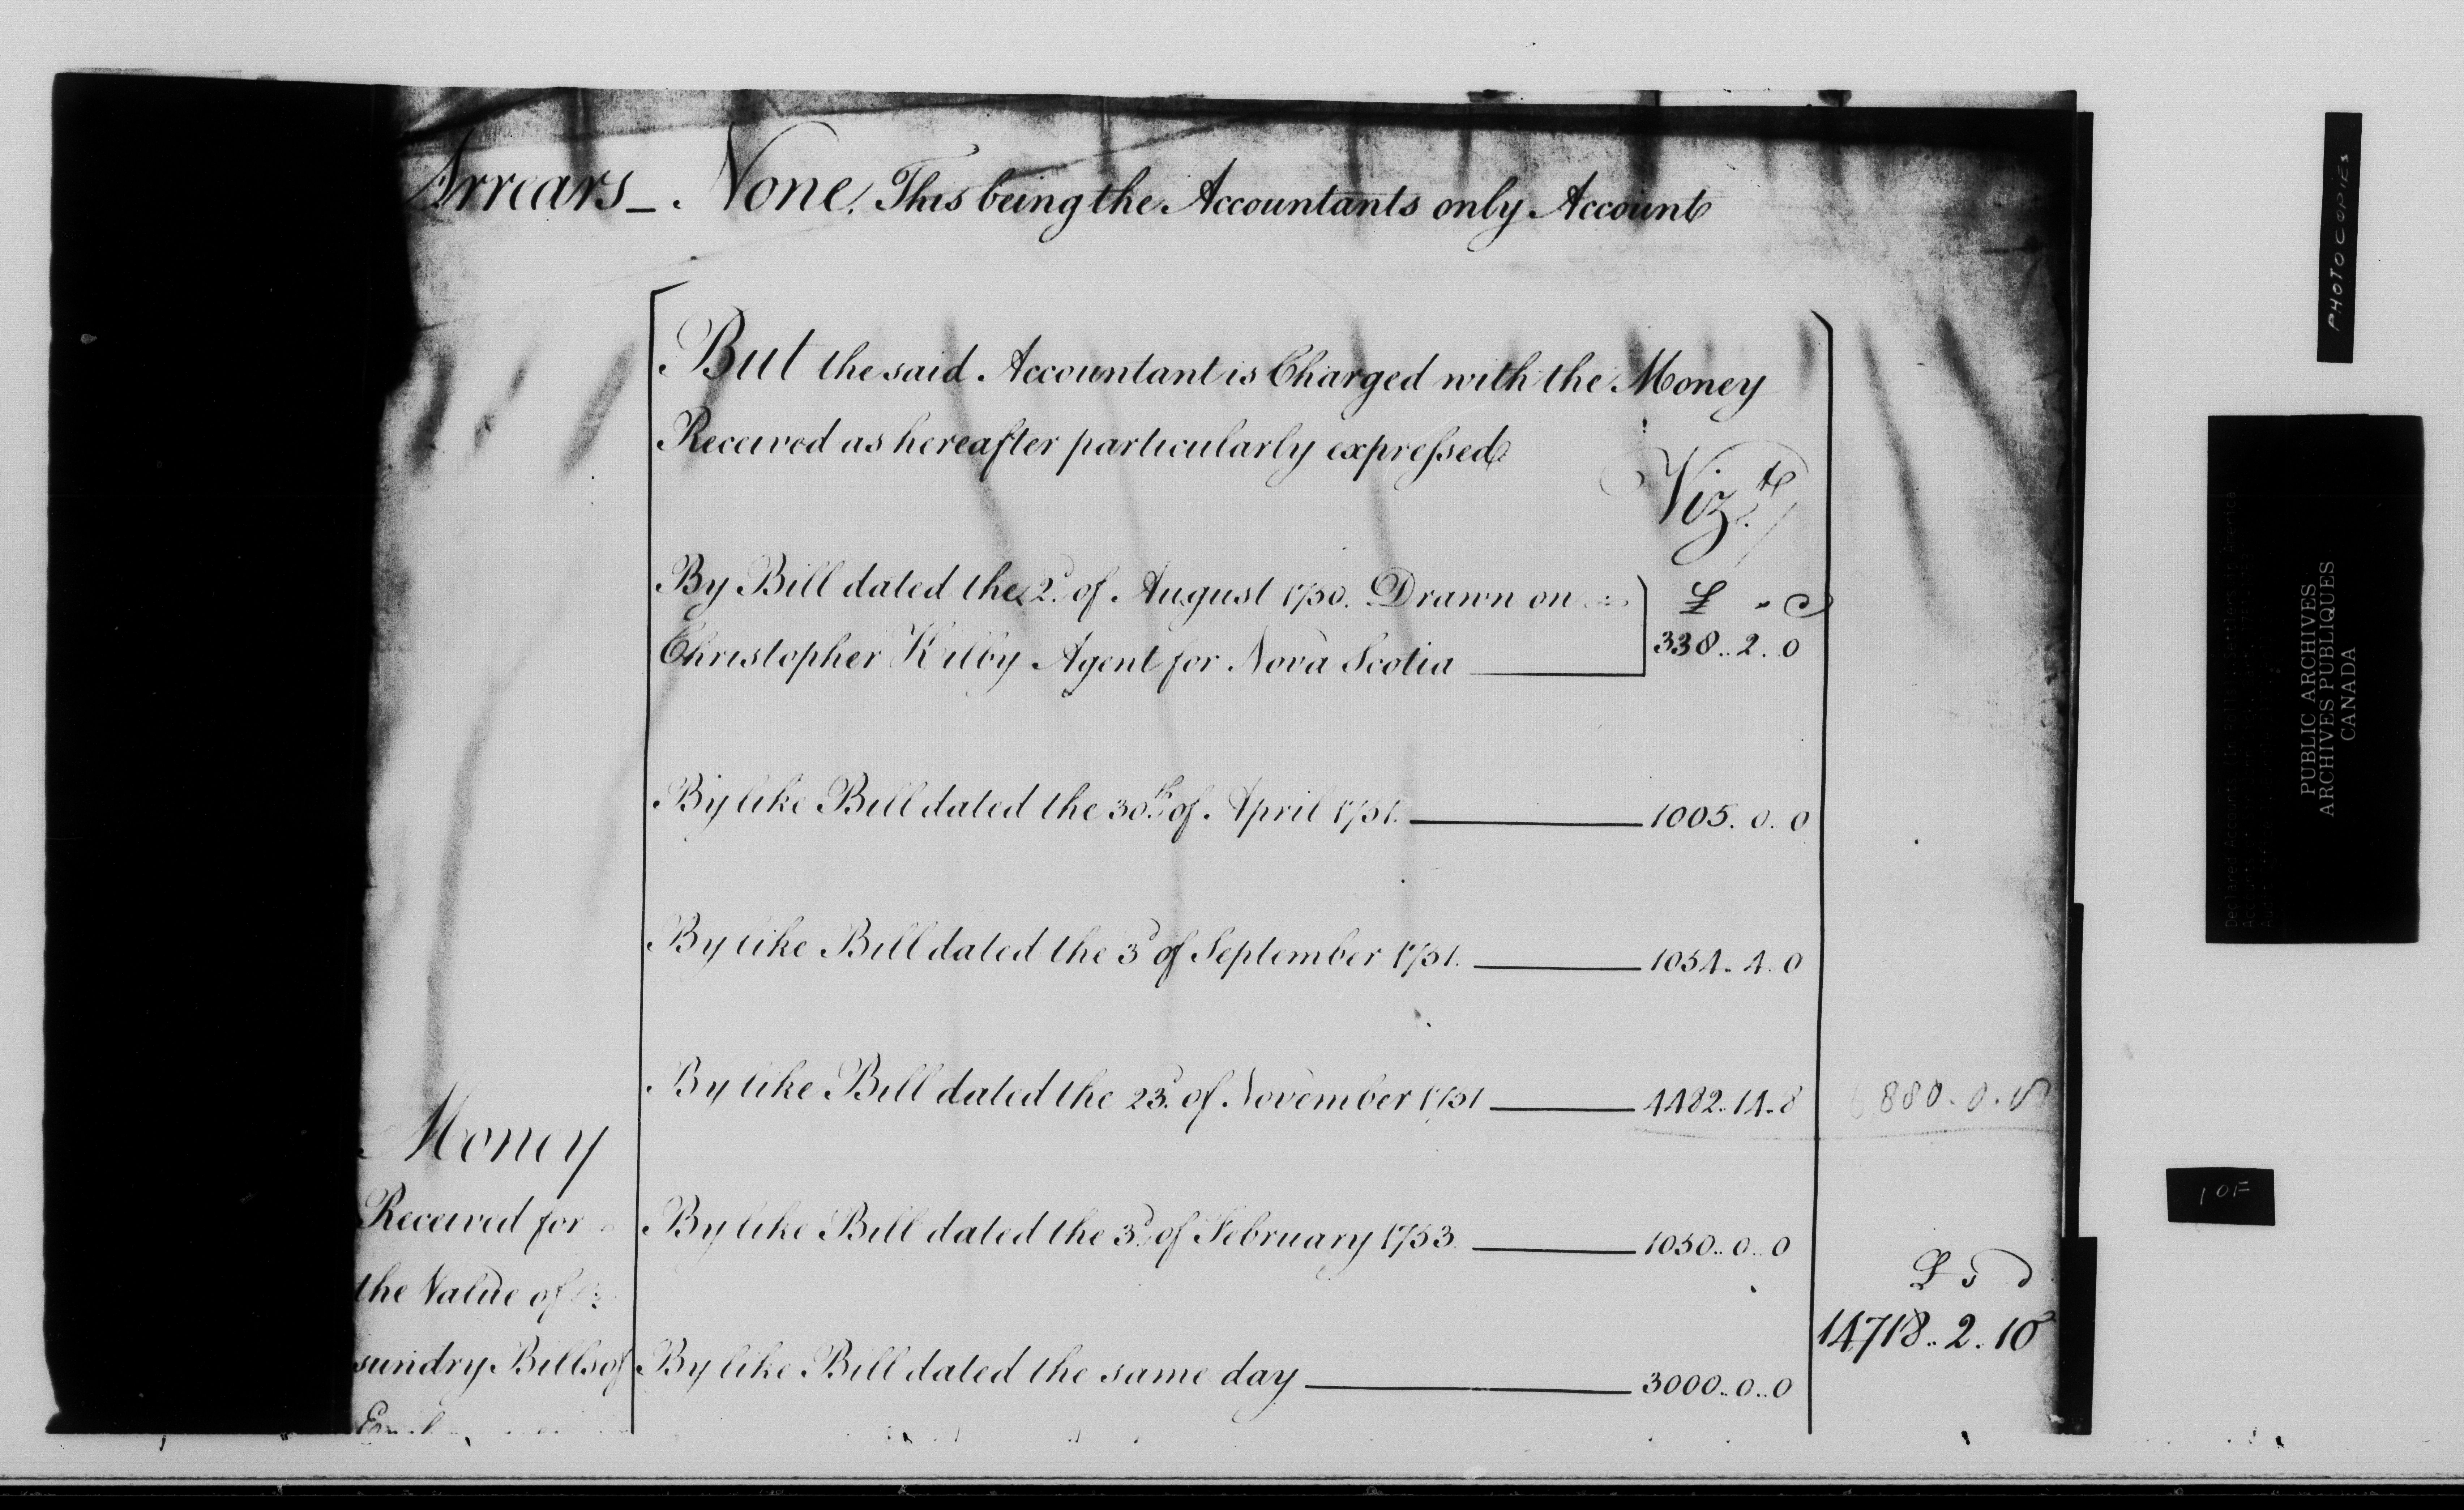 Arrears_ None. This being the Accountants only Account
But the said Accountant is Charged with the Money
Received as hereafter particularly expressed
Vizt.
By Bill dated the 2d. of August 1750. Drawn on
Christopher Kilby Agent for Nova Scotia
£
338..2..0
By like Bill dated the 30th. of April 1751. 1005.0.0
By like Bill dated the 3d of September 1751. 1054.4.0
By like Bill dated the 23d. of November 1751 4482.14.8
6,880.0.8
Money
Received for
the Value of
sundry Bills of
By like Bill dated the 3d. of February 1753. 1050..0..0
By like Bill dated the same day 3000..0..0
£ s d
14718..2.10
PHOTOCOPIES
PUBLIC ARCHIVES
ARCHIVES PUBLIQUES
CANADA
1 OF